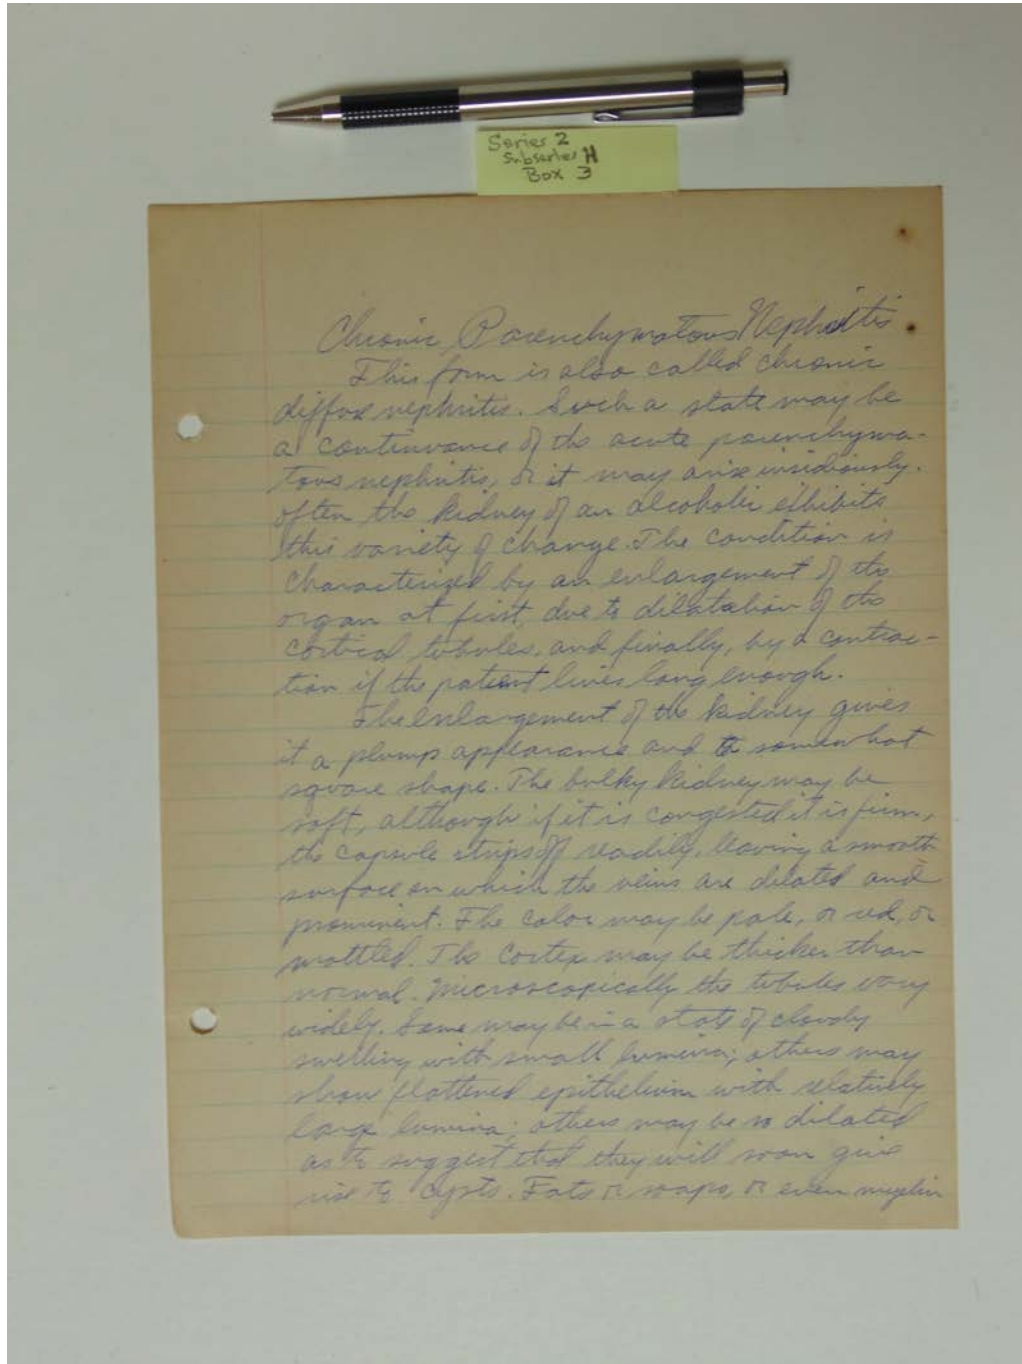 Series 2
Subseries H
Box 3
Chronic Parenchymatous Nephritis
This form is also called chronic
diffuse nephritis. Such a state may be
a continuance of the acute parenchyma-
tous nephritis, or it may arise insidiously.
often the kidney of an alcoholic exhibits
this variety of change. The condition is
characterized by an enlargement of the
organ at first, due to dilatation of the
cortical tubules, and finally, by a contrac-
tion if the patient lives long enough.
The enlargement of the kidney gives
it a plump appearance and a somewhat
square shape. The bulky kidney may be
soft, although if it is congested it is firm,
the capsule strips off readily, leaving a smooth
surface on which the veins are dilated and
prominent. The color may be pale, or red, or
mottled. The cortex may be thicker than
normal. Microscopically the tubules vary
widely. Some may be in a state of cloudy
swelling with small lumina; others may
show flattened epithelium with relatively
large lumina; others may be so dilated
as to suggest that they will soon give
rise to cysts. Fats or soaps, or even myelin